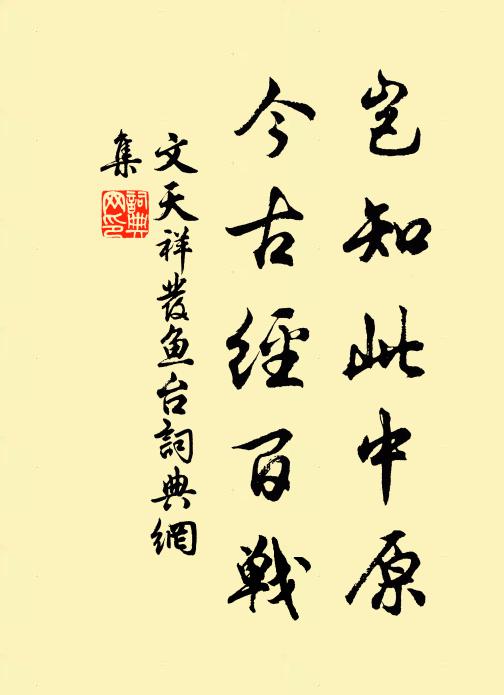 岂知此中原
今古經百戦
文天祥發鱼台詞典網
集
詞典
网印